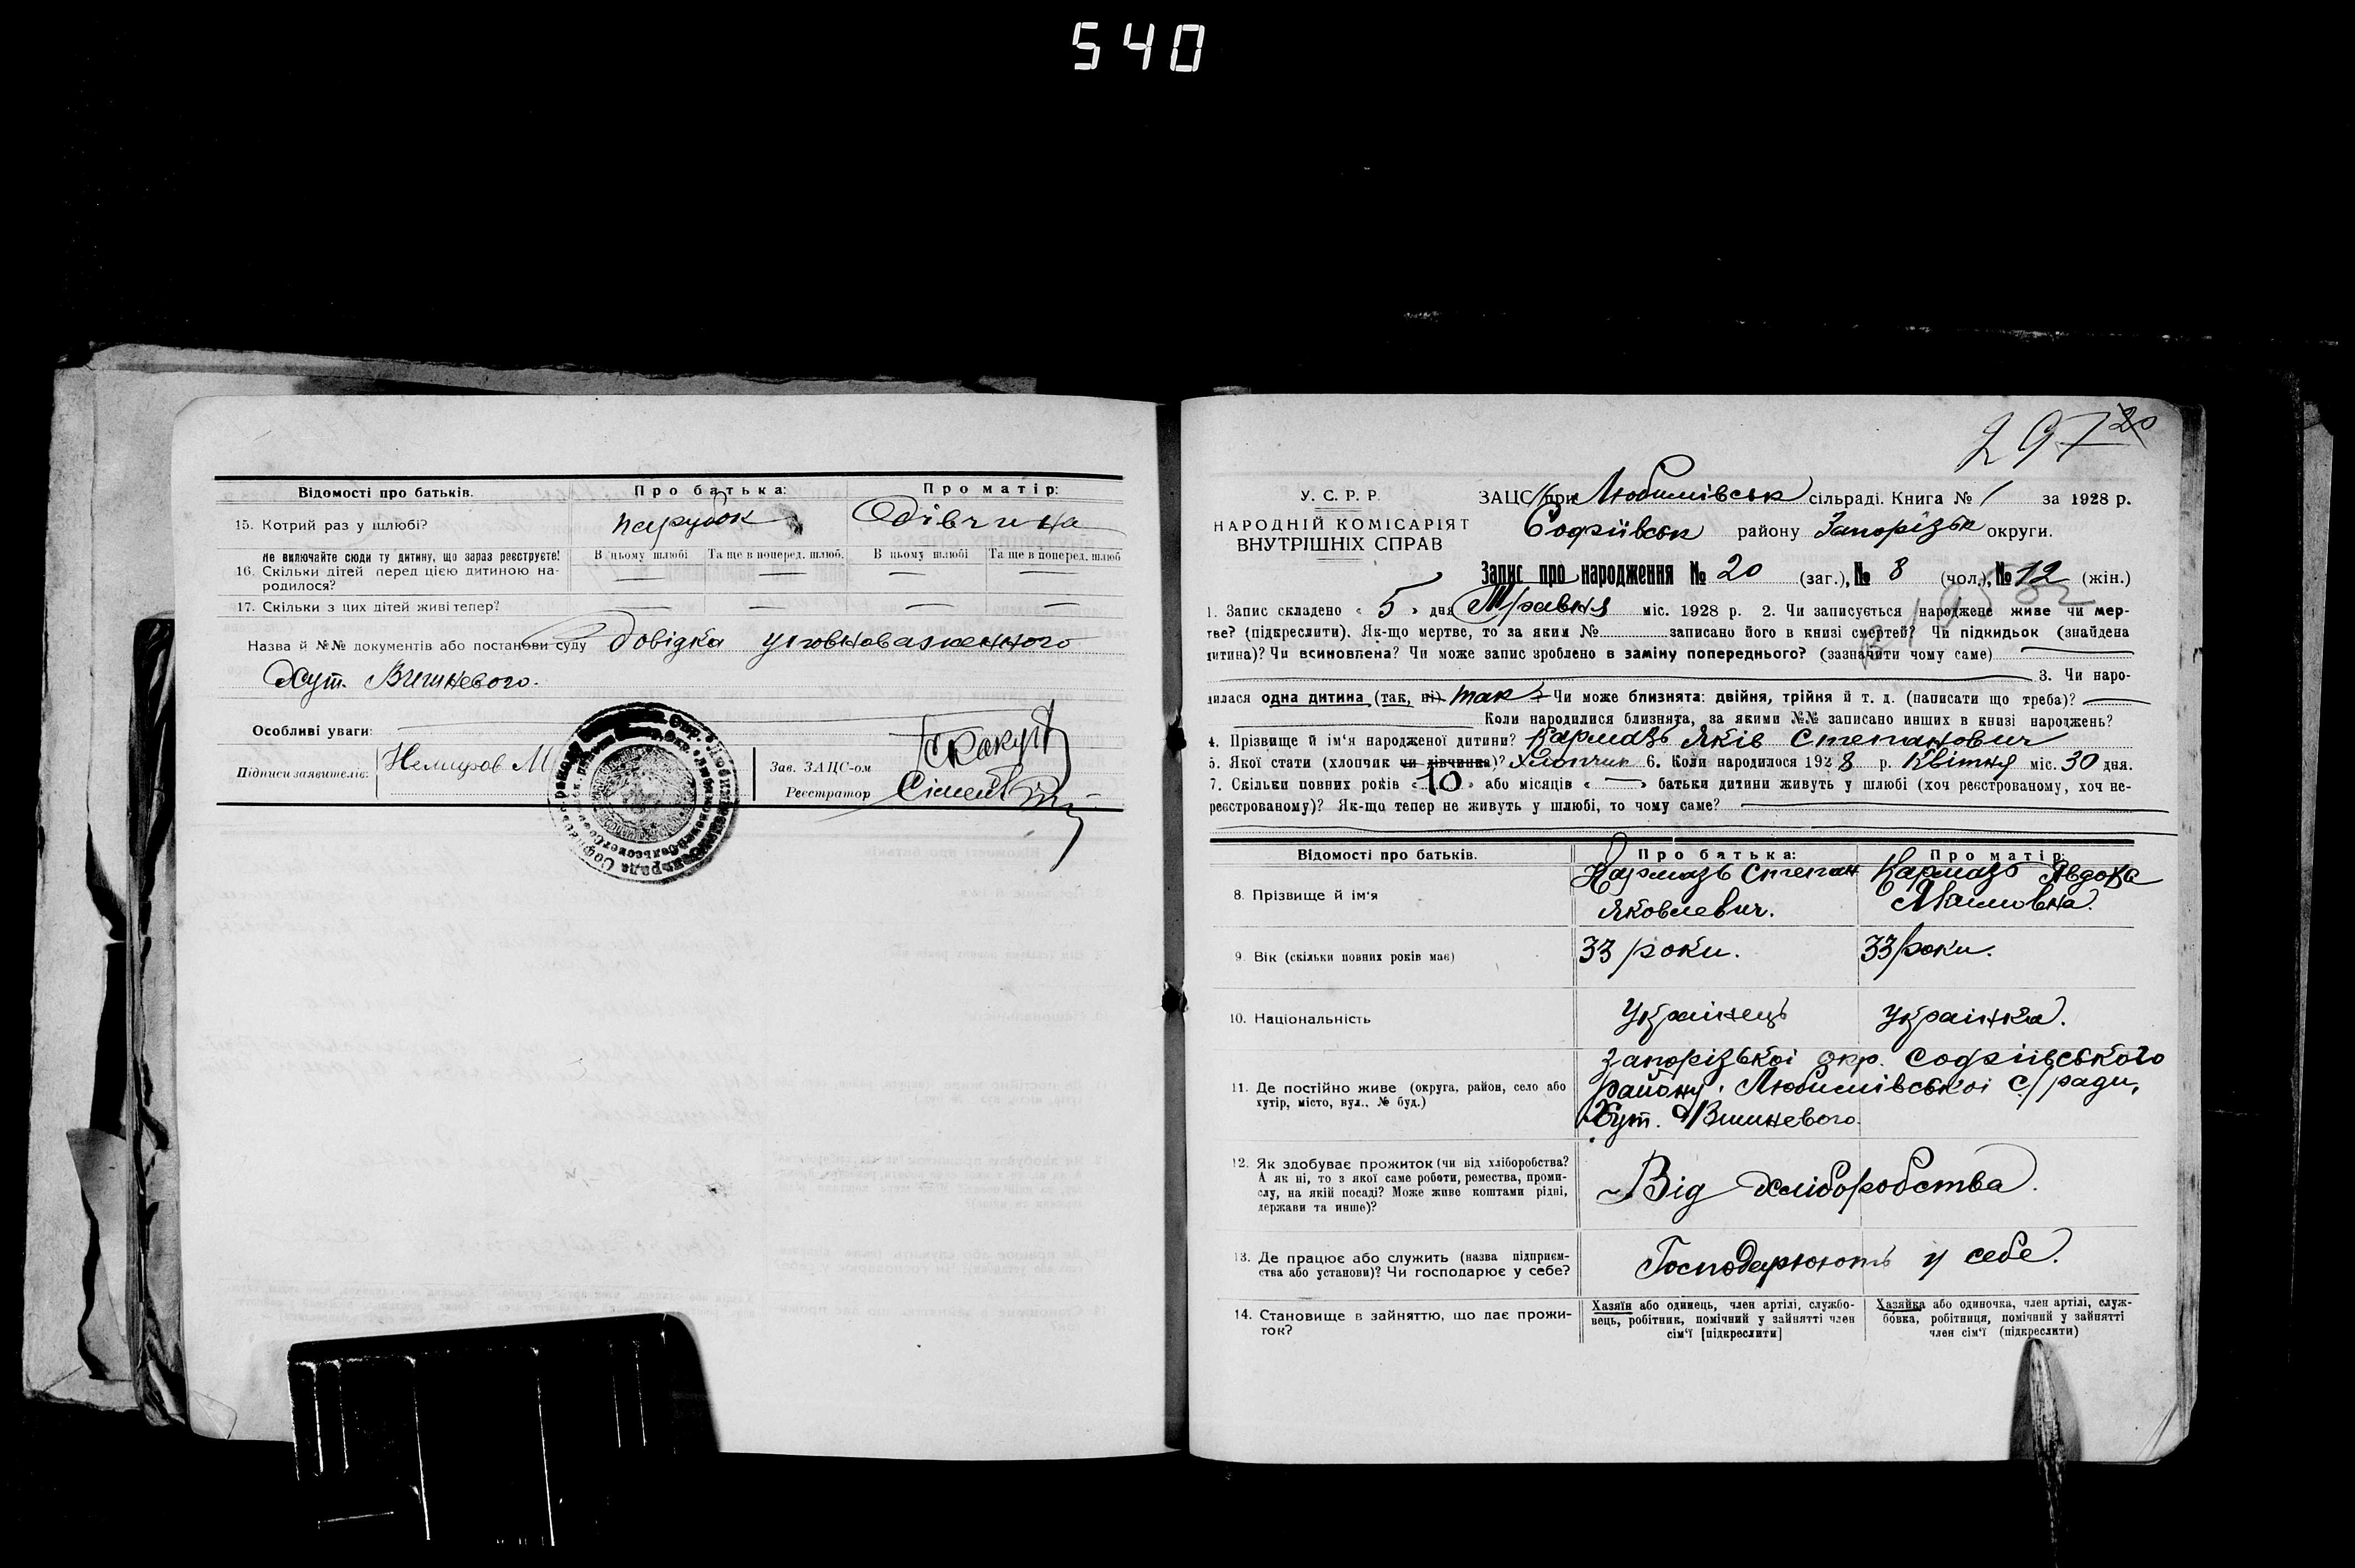 540
Відомості про батьків. Про батька: Про матір:
15. Котрий раз у шлюбі? парубок Дівчина
Не включайте сюди ту дитину, що зараз реєструєте! В цьому шлюбі Та ще в поперед. шлюб. В цьому шлюбі Та ще в поперед. шлюб
16. Скільки дітей перед цією дитиною на- — — — —
родилося?
17. Скільки з цих дітей живі тепер? — — — —
Назва й №№ документів або постанови суду Довідка уповноваженного
Хут. Вишневого.
Особливі уваги:
Підписи заявителів: Немиров М
Зав. ЗАЦС-ом
Реєстратор
297 20
У. С. Р. Р.
НАРОДНІЙ КОМІСАРІЯТ
ВНУТРІШНІХ СПРАВ
ЗАЦС при Любимівськ сільраді. Книга № 1 за 1928 р.
Софіївськ району Запорізьк округи.
Запис про народження № 20 (заг.), № 8 (чол.), № 12 (жін.)
1. Запис складено « 5 » дня Травня міс. 1928 р. 2. Чи записується народжене живе чи мер-
тве? (підкреслити). Як-що мертве, то за яким № записано його в книзі смертей? Чи підкидьок (знайдена
дитина)? Чи всиновлена? Чи може запис зроблено в заміну попереднього? (зазначити чому саме)
3. Чи наро-
дилася одна дитина (так, ні) так Чи може близнята: двійня, трійня й т. д. (написати що треба)?
Коли народилися близнята, за якими №№ записано инших в книзі народжень?
4. Прізвище й ім'я народженої дитини? Кармазь Яків Степанович
5. Якої стати (хлопчик чи дівчинка)? Хлопчик 6. Коли народилося 1928 р. Квітня міс. 30 дня.
7. Скільки повних років « 10 » або місяців « — » батьки дитини живуть у шлюбі (хоч реєстрованому, хоч не-
реєстрованому)? Як-що тепер не живуть у шлюбі, то чому саме?
Відомості про батьків. Про батька: Про матір:
8. Прізвище й ім'я Кармазь Степан Кармазь Явдоха
Яковлевич. Якимовна.
9. Вік (скільки повних років має) 33 роки. 33 роки.
10. Національність Українець Українка.
Запорізькоі окр. Софіівського
11. Де постійно живе (округа, район, село або району, Любимівськоі с/ради,
хутір, місто, вул., № буд.)
Хут. Вишневого.
12. Як здобуває прожиток (чи від хліборобства?
А як ні, то з якої саме роботи, ремества, проми-
слу, на якій посаді? Може живе коштами рідні,
держави та инше)?
Від хліборобства.
13. Де працює або служить (назва підприєм-
ства або установи)? Чи господарює у себе?
Господарюють у себе.
14. Становище в зайняттю, що дає прожи-
ток?
Хазяїн або одинець, член артілі, службо-
вець, робітник, помічний у зайнятті член
сім'ї [підкреслити]
Хазяйка або одиночка, член артілі, служ-
бовка, робітниця, помічний у зайнятті
член сім'ї (підкреслити)